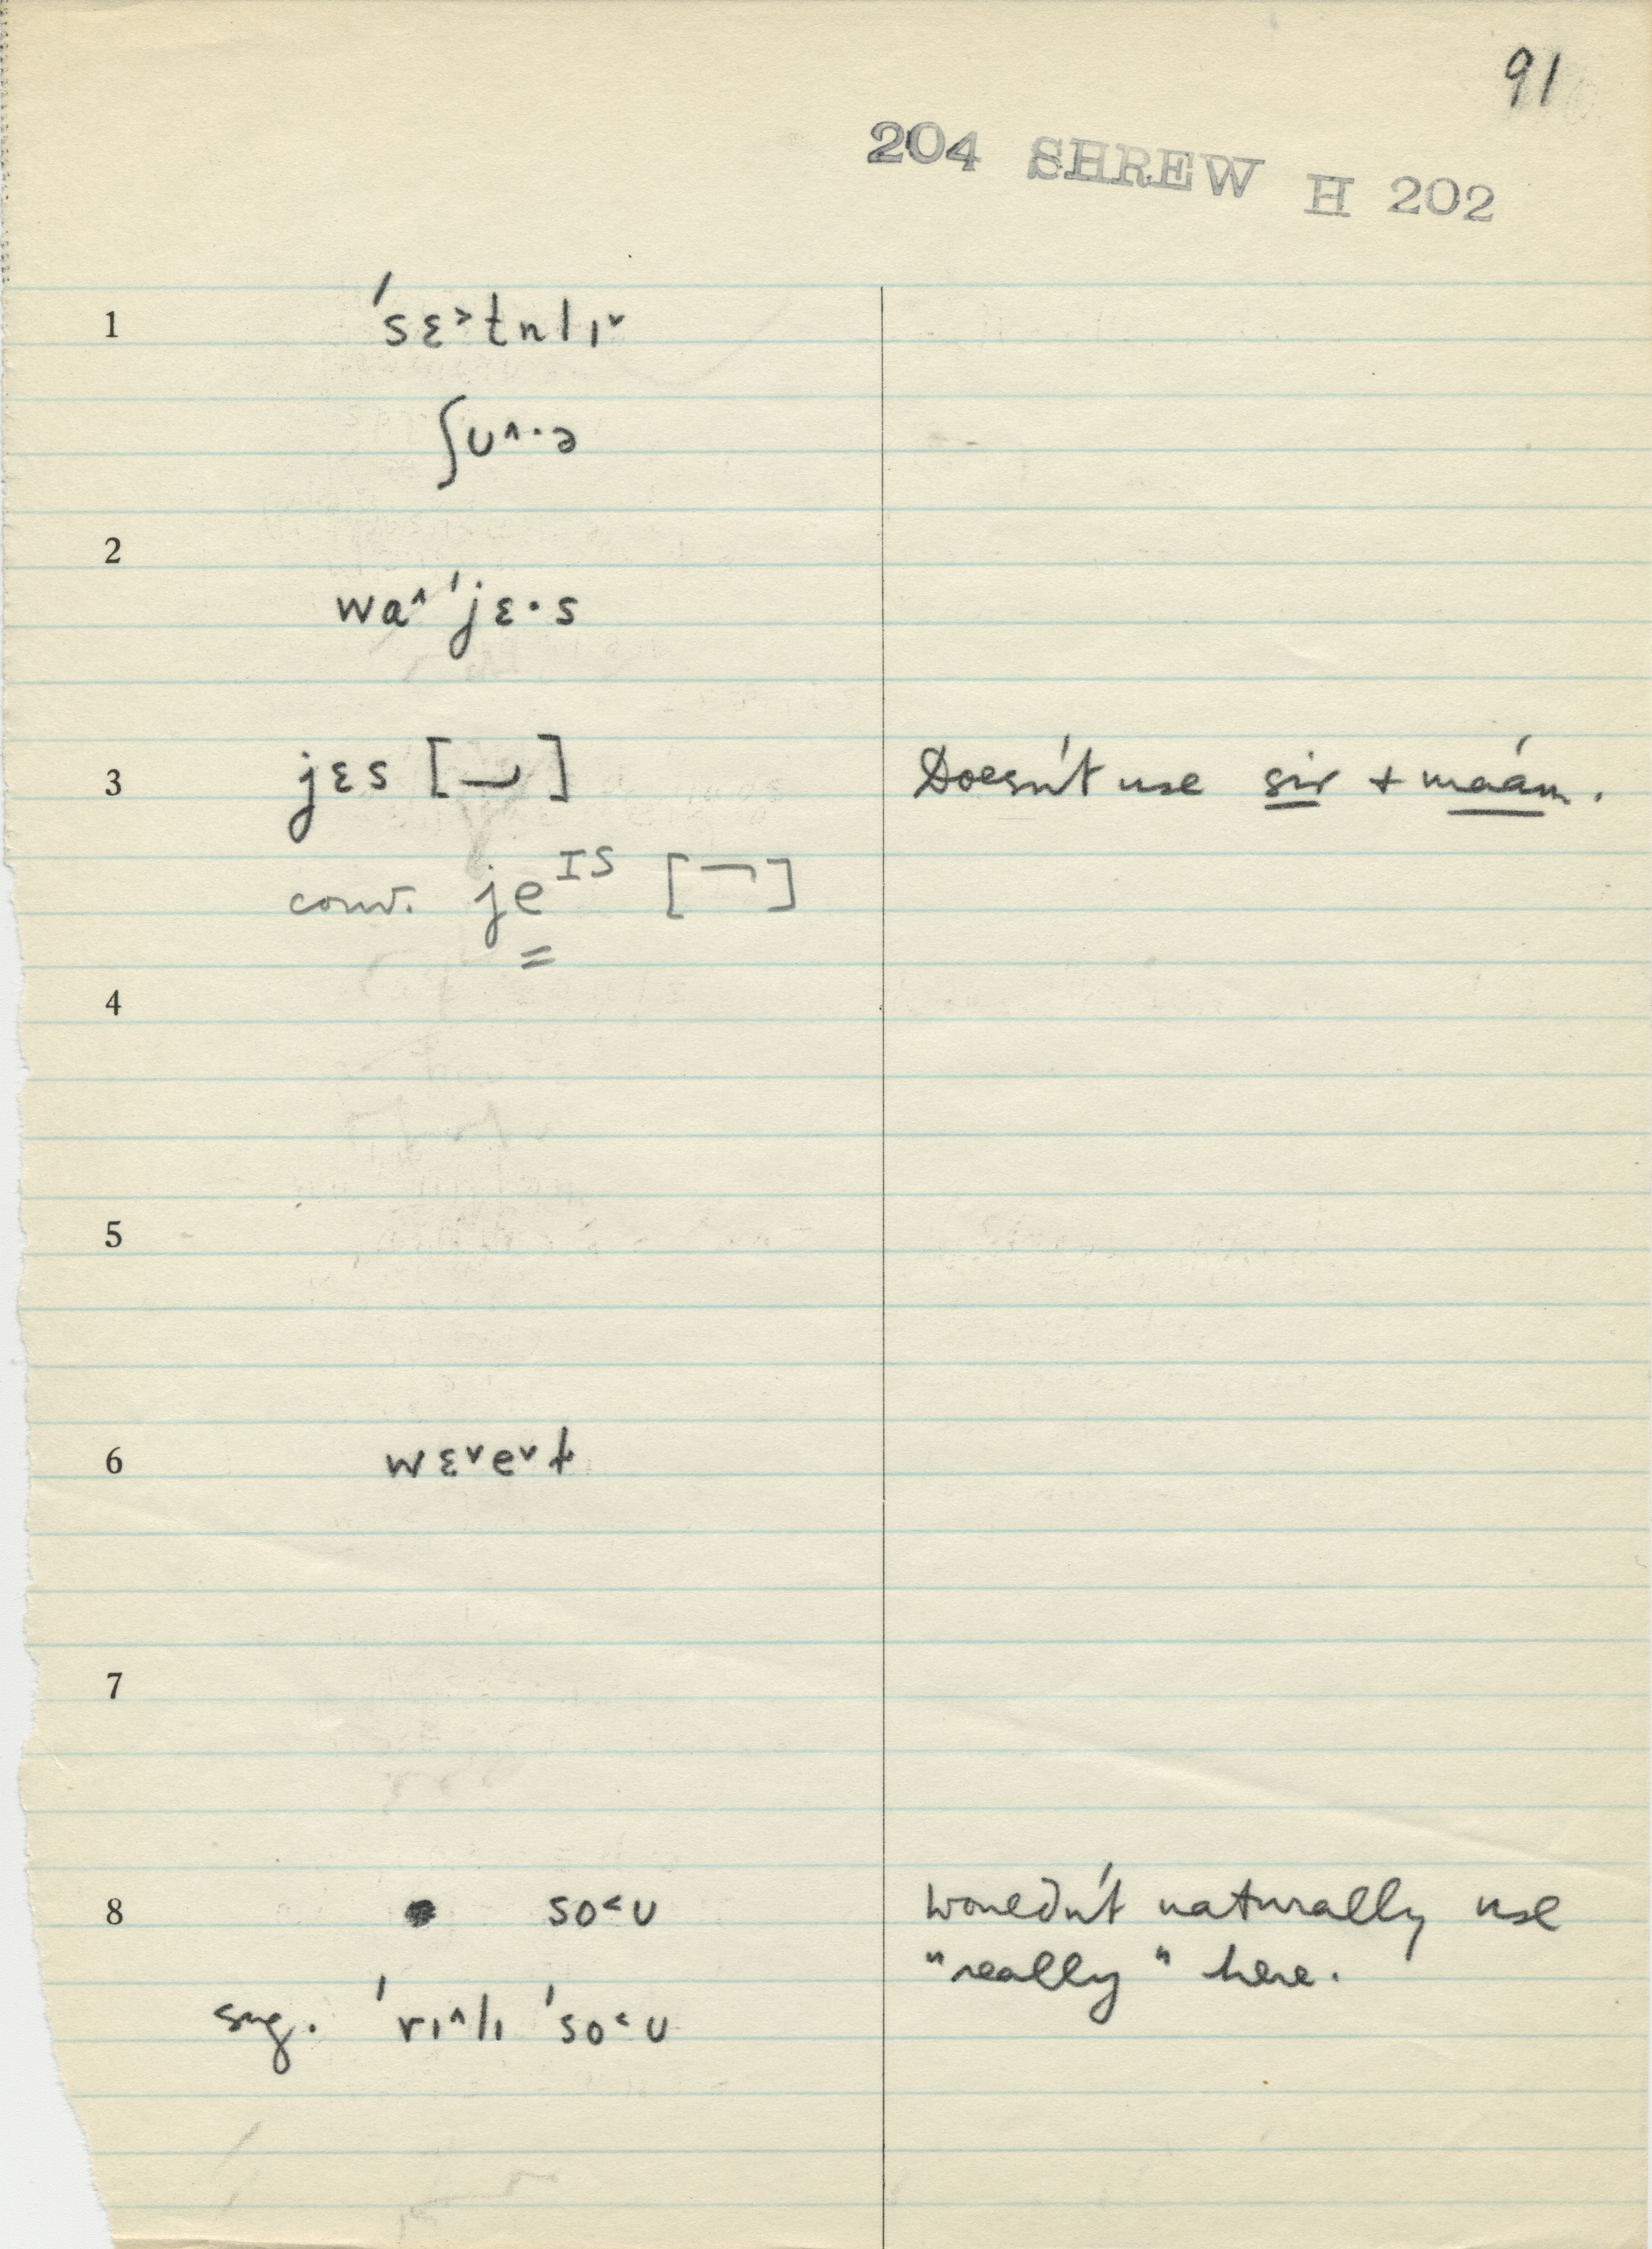 91
204 SHREW H 202
1 'sɛ˃tnlɪ˅
ʃʊ˄·ə
2
wa˄'jɛ·s
3 jɛs [⏑] Doesn't use sir + ma'am.
conv. jeIS [¬]
4
5
6 wɛ˅e˅ɫ
7
8 so˂ʊ Wouldn't naturally use
"really" here.
sug. 'rɪ˄lɪ 'so˂ʊ